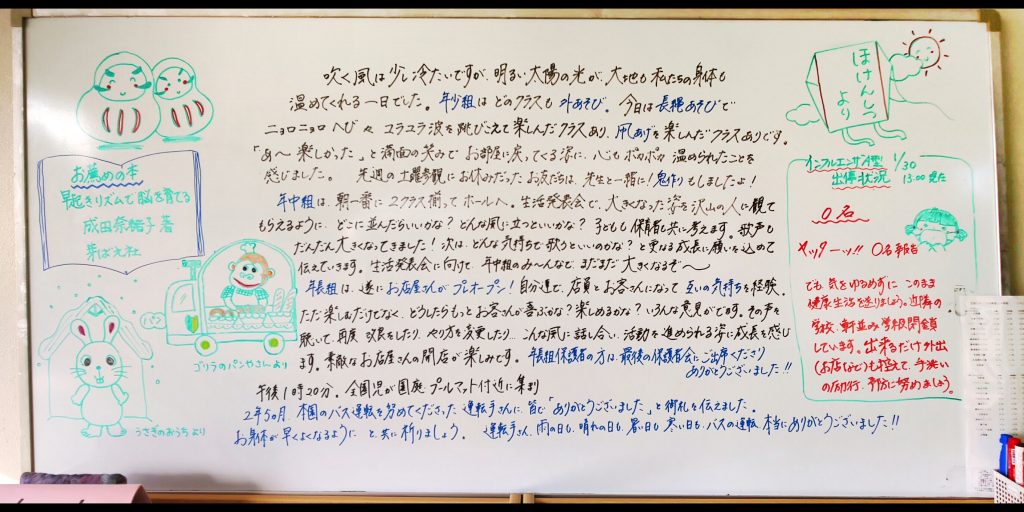 吹く風は少し冷たいですが、明るい太陽の光が、大地も私たちの身体も
温めてくれる一日でした。年少組はどのクラスも外あそび。今日は長縄あそびで
ニョロニョロへび々ユラユラ波を跳びこえて楽しんだクラスあり、凧あげを楽しんだクラスありです。
「あ〜楽しかった」と満面の笑みでお部屋に戻ってくる姿に、心もポカポカ温められたことを
感じました。先週の土曜参観にお休みだったお友だちは、先生と一緒に!鬼作りもしましたよ!
年中組は、朝一番に2クラス揃ってホールへ。生活発表会で、大きくなった姿を沢山の人に観て
もらえるように、どこに並んだらいいかな?どんな風に立つといいかな?子どもも保育者も共に考えます。歌声も
だんだん大きくなってきました!次は、どんな気持ちで歌うといいのかな?と更なる成長に願いを込めて
伝えていきます。生活発表会に向けて、年中組のみ〜んなで、まだまだ大きくなるぞ〜
年長組は、遂にお店屋さんがプレオープン!自分達で、店員とお客さんになって互いの気持ちを経験。
ただ楽しむだけでなく、どうしたらもっとお客さんが喜ぶかな?楽しめるかな?いろんな意見がでます。その声を
聴いて、再度改良をしたり、やり方を変更したり…こんな風に話し合い、活動を進められる姿に成長を感じ
ます。素敵なお店屋さんの開店が楽しみです。年長組保護者の方は、最後の保護者会にご出席くださり
ありがとうございました!!
午後1時20分、全園児が園庭プールマット付近に集まり
2年5ヵ月、本園のバス運転を努めてくださった運転手さんに、皆で「ありがとうございました」と御礼を伝えました。
お身体が早くよくなるようにと、共に祈りましょう。運転手さん、雨の日も、晴れの日も、暑い日も、寒い日も、バスの運転、本当にありがとうございました!!
お薦めの本
早起きリズムで脳を育てる
成田奈緒子著
芽ばえ社
ゴリラのパンやさんより
うさぎのおうちより
ほけんしつ
より
インフルエンザA型 1/30
出停状況 13:00現在
0名
ヤッターッ!! 0名報告
でも、気をゆるめずに、このまま
健康生活を送りましょう。近隣の
学校、軒並み学級閉鎖
しています。出来るだけ外出
(お店など)も控えて、手洗い
の励行、予防に努めましょう。